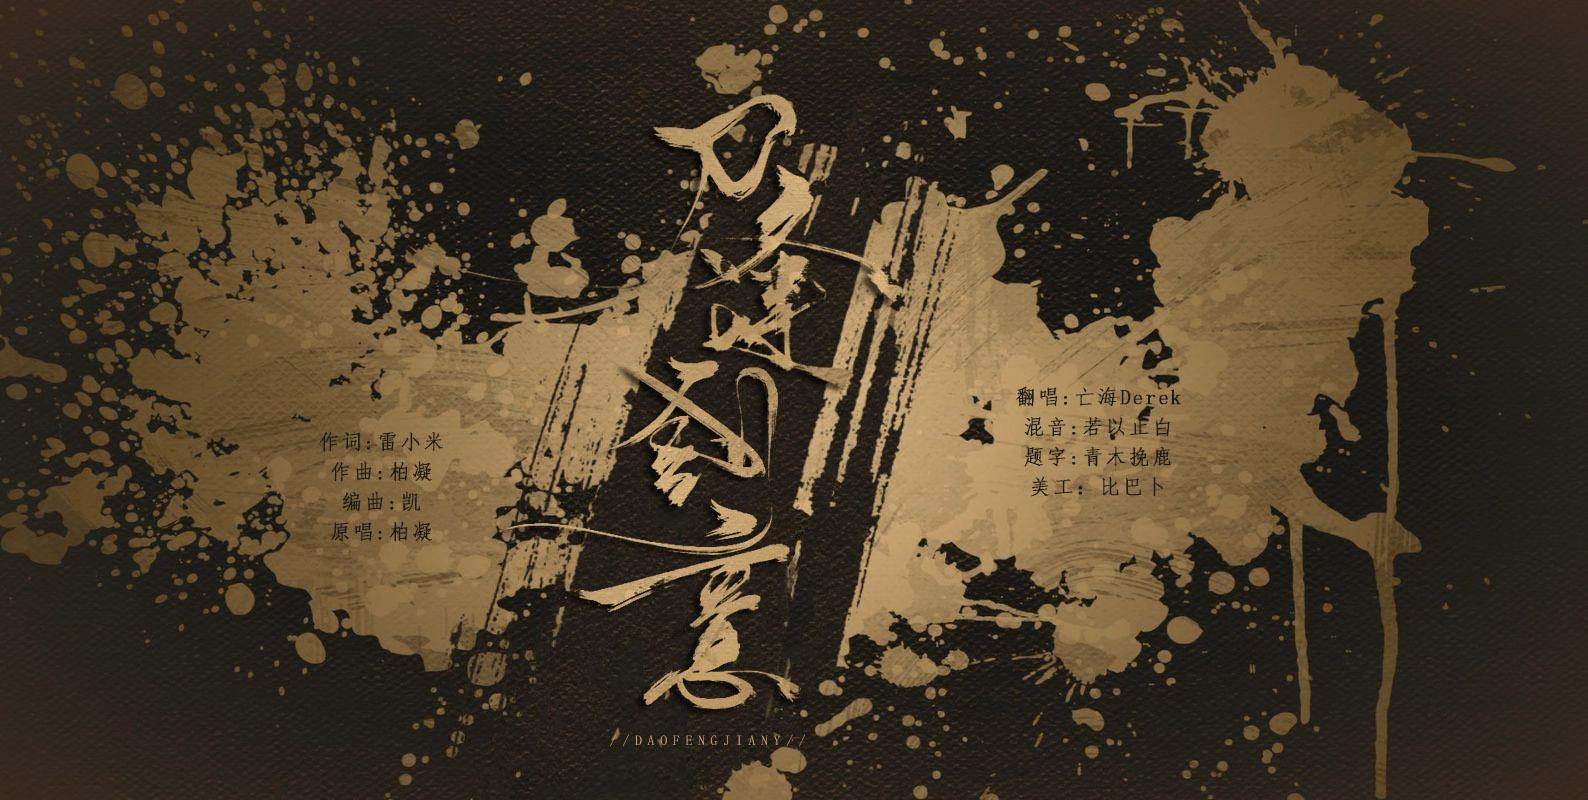 刀锋剑意
//DAOFENGJIANY//
作词:雷小米
作曲:柏凝
编曲:凯
原唱:柏凝
翻唱:亡海Derek
混音:若以止白
题字:青木挽鹿
美工: 比巴卜